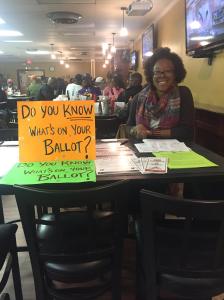 DO YOU KNOW
WHAT'S ON YOUR
BALLOT?
DO YOU KNOW
WHAT'S ON YOUR
BALLOT!